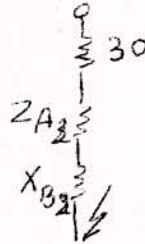 30
ZA2
XB2